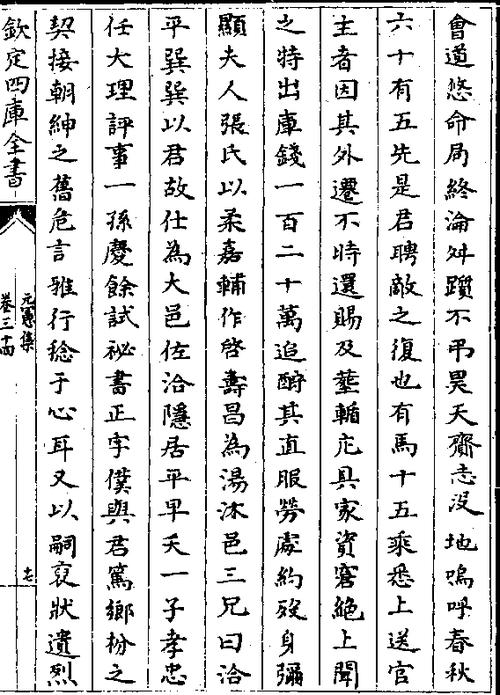 會道悠命局終淪舛躓不弔昊天齎志沒地嗚呼春秋
六十有五先是君聘敵之復也有馬十五乘悉上送官
主者因其外遷不時還賜及塟輴庀具家資窘絕上聞
之特出庫錢一百二十萬追酧其直服勞處約歿身彌
顯夫人張氏以柔嘉輔作啓壽昌為湯沐邑三兄曰洽
平巽巽以君故仕為大邑佐洽隱居平早夭一子孝忠
任大理評事一孫慶餘試祕書正字僕與君篤鄉枌之
契接朝紳之舊危言雅行稔于心耳又以嗣哀狀遺烈
欽定四庫全書
元憲集
卷三十四
七